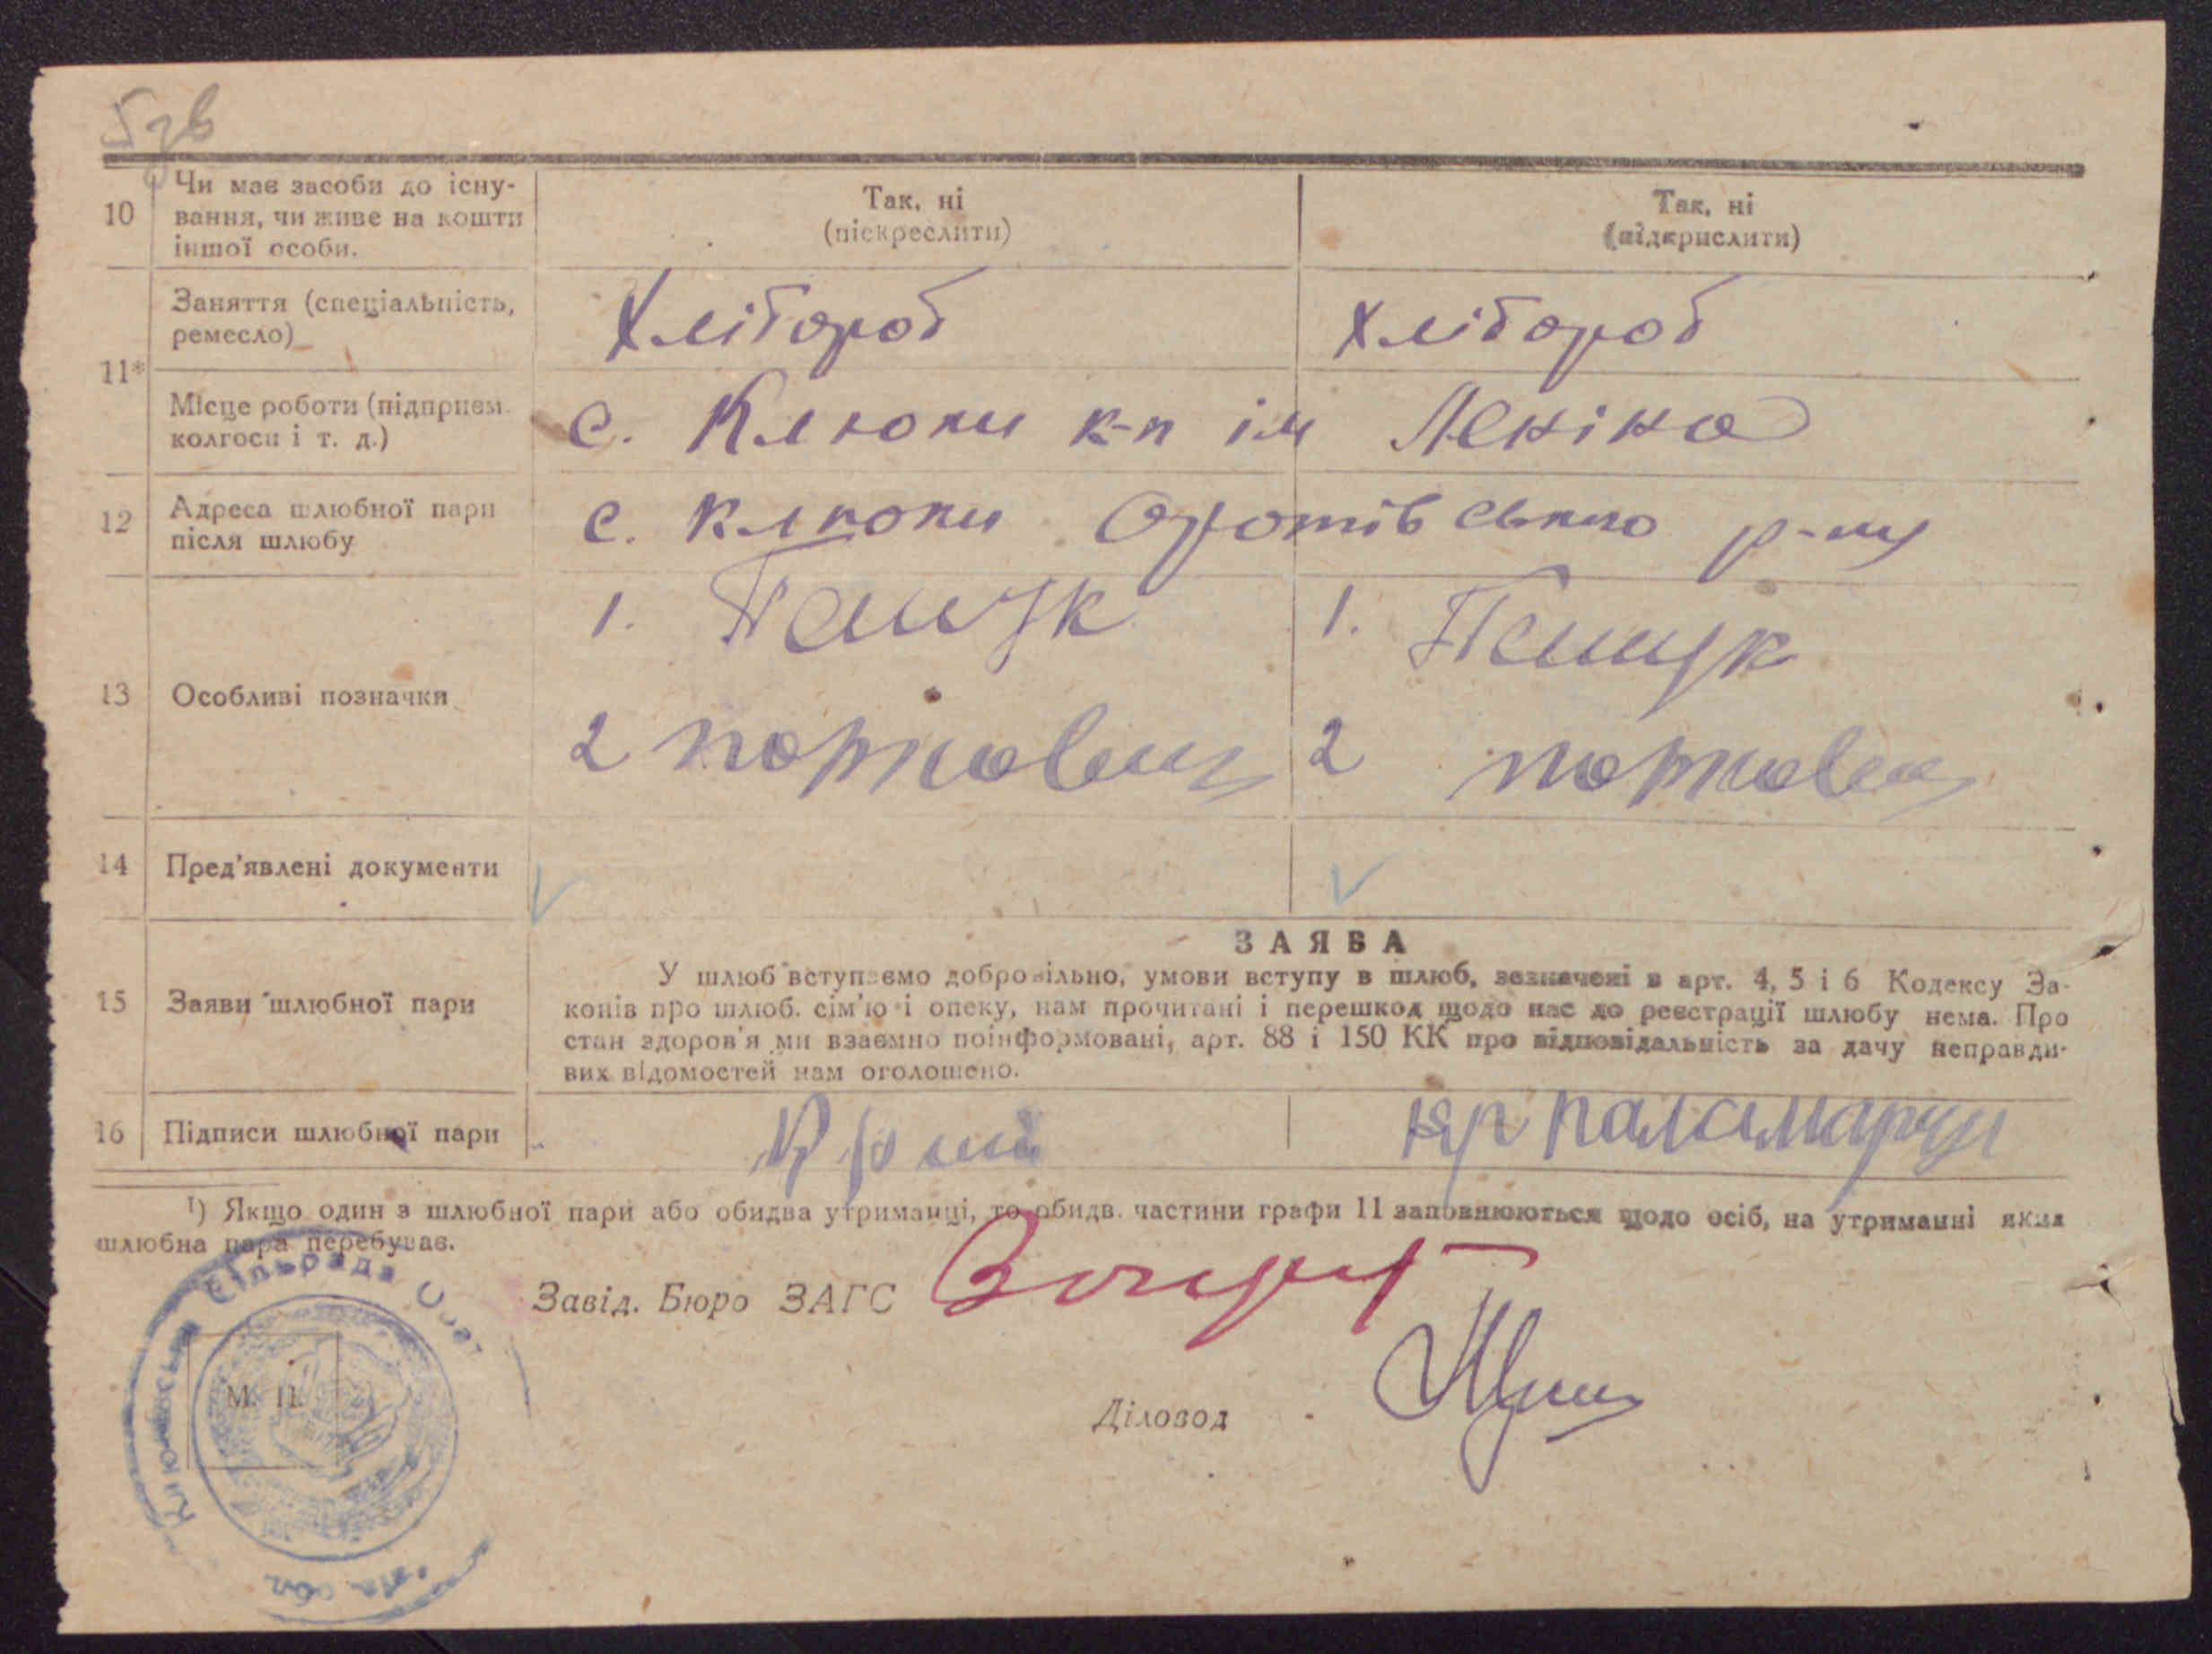 5зв
10 Чи має засоби до існу-
вання, чи живе на кошти
іншої особи.
Так, ні
(піскреслити)
Так, ні
(підкрислити)
11* Заняття (спеціальність,
ремесло)
Хлібороб
Хлібороб
Місце роботи (підприєм.
колгосп і т. д.)
с. Клюки к-п ім Леніна
12 Адреса шлюбної пари
після шлюбу
с. Клюки р-ну
13 Особливі позначки
1.
1.
2
2
14 Пред'явлені документи
15 Заяви шлюбної пари
ЗАЯВА
У шлюб вступаємо добровільно, умови вступу в шлюб, зазначені в арт. 4, 5 і 6 Кодексу За-
конів про шлюб. сім'ю і опеку, нам прочитані і перешкод щодо нас до реєстрації шлюбу нема. Про
стан здоров'я ми взаємно поінформовані, арт. 88 і 150 КК про відповідальність за дачу неправди-
вих відомостей нам оголошено.
16 Підписи шлюбної пари
¹) Якщо один з шлюбної пари або обидва утриманці, то обидв. частини графи 11 заповнюються щодо осіб, на утриманні яких
шлюбна пара перебуває.
Завід. Бюро ЗАГС
Діловод
М. П.
Сільрада